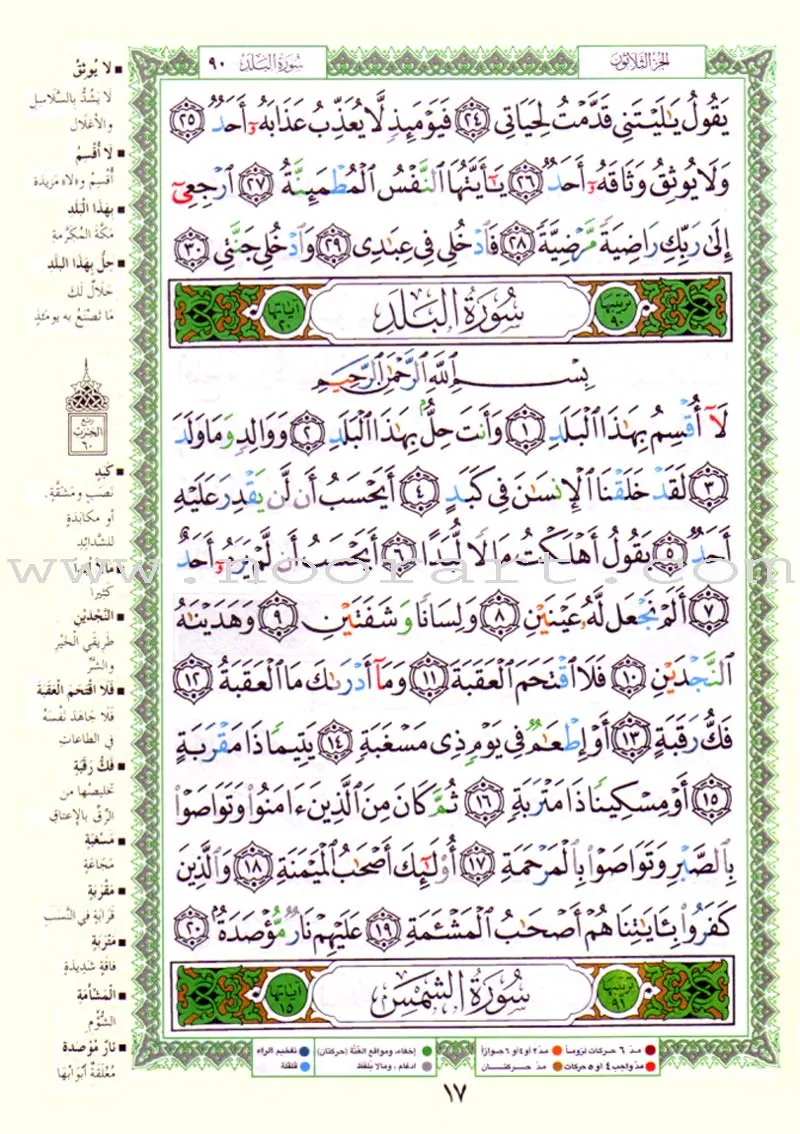 الجزء الثلاثون
سورة البلد ٩٠
يَقُولُ يَٰلَيْتَنِى قَدَّمْتُ لِحَيَاتِى ٢٤ فَيَوْمَئِذٍ لَّا يُعَذِّبُ عَذَابَهُۥٓ أَحَدٌ ٢٥
وَلَا يُوثِقُ وَثَاقَهُۥٓ أَحَدٌ ٢٦ يَٰٓأَيَّتُهَا ٱلنَّفْسُ ٱلْمُطْمَئِنَّةُ ٢٧ ٱرْجِعِىٓ
إِلَىٰ رَبِّكِ رَاضِيَةً مَّرْضِيَّةً ٢٨ فَٱدْخُلِى فِى عِبَٰدِى ٢٩ وَٱدْخُلِى جَنَّتِى ٣٠
ترتيبها ٩٠ سُورَةُ البَلَدِ آياتها ٢٠
بِسْمِ ٱللَّهِ ٱلرَّحْمَٰنِ ٱلرَّحِيمِ
لَآ أُقْسِمُ بِهَٰذَا ٱلْبَلَدِ ١ وَأَنتَ حِلٌّۢ بِهَٰذَا ٱلْبَلَدِ ٢ وَوَالِدٍ وَمَا وَلَدَ
٣ لَقَدْ خَلَقْنَا ٱلْإِنسَٰنَ فِى كَبَدٍ ٤ أَيَحْسَبُ أَن لَّن يَقْدِرَ عَلَيْهِ
أَحَدٌ ٥ يَقُولُ أَهْلَكْتُ مَالًا لُّبَدًا ٦ أَيَحْسَبُ أَن لَّمْ يَرَهُۥٓ أَحَدٌ
٧ أَلَمْ نَجْعَل لَّهُۥ عَيْنَيْنِ ٨ وَلِسَانًا وَشَفَتَيْنِ ٩ وَهَدَيْنَٰهُ
ٱلنَّجْدَيْنِ ١٠ فَلَا ٱقْتَحَمَ ٱلْعَقَبَةَ ١١ وَمَآ أَدْرَىٰكَ مَا ٱلْعَقَبَةُ ١٢
فَكُّ رَقَبَةٍ ١٣ أَوْ إِطْعَٰمٌ فِى يَوْمٍ ذِى مَسْغَبَةٍ ١٤ يَتِيمًا ذَا مَقْرَبَةٍ
١٥ أَوْ مِسْكِينًا ذَا مَتْرَبَةٍ ١٦ ثُمَّ كَانَ مِنَ ٱلَّذِينَ ءَامَنُوا۟ وَتَوَاصَوْا۟
بِٱلصَّبْرِ وَتَوَاصَوْا۟ بِٱلْمَرْحَمَةِ ١٧ أُو۟لَٰٓئِكَ أَصْحَٰبُ ٱلْمَيْمَنَةِ ١٨ وَٱلَّذِينَ
كَفَرُوا۟ بِـَٔايَٰتِنَا هُمْ أَصْحَٰبُ ٱلْمَشْـَٔمَةِ ١٩ عَلَيْهِمْ نَارٌ مُّؤْصَدَةٌۢ ٢٠
ترتيبها ٩١ سُورَةُ الشَّمْسِ آياتها ١٥
لا يُوثِقُ
لَا يَشُدُّ بالسَّلَاسِلِ
والأغْلَالِ
لَا أُقْسِمُ
أُقْسِمُ و«لا» مَزيدة
بِهَذَا الْبَلَدِ
مَكَّةَ المُكَرَّمةِ
حِلٌّ بِهَذَا البَلَدِ
حَلَالٌ لَكَ
مَا تَصْنَعُ به يومَئِذٍ
ربع
الحزب
٦٠
كَبَدٍ
نَصَبٍ ومَشَقَّةٍ.
أو مكابَدَةٍ
للشَّدائِدِ
مَالاً لُبَداً
كثيرا
النَّجْدَيْنِ
طَرِيقَي الخَيْرِ
والشَّرِّ
فَلَا اقْتَحَمَ الْعَقَبَةَ
فَلَا جَاهَدَ نَفْسَهُ
في الطاعاتِ
فَكُّ رَقَبَةٍ
تخليصُها من
الرِّقِّ بالإعتاقِ
مَسْغَبَةٍ
مَجَاعَةٍ
مَقْرَبَةٍ
قَرَابَةٍ في النَّسَبِ
مَتْرَبَةٍ
فاقَةٍ شَدِيدَةٍ
الْمَشْأَمَةِ
الشُّؤْمِ
نَارٌ مُؤْصَدَة
مُغْلَقَةٌ أبْوابُها
www.noorart.com
مدّ ٦ حركات لزوماً مدّ ٢ أو ٤ أو ٦ جوازاً إخفاء، ومواقع الغنّة (حركتان) تفخيم الراء
مدّ واجب ٤ أو ٥ حركات مدّ حركتان ادغام، ومالا يُلفظ قلقلة
١٧